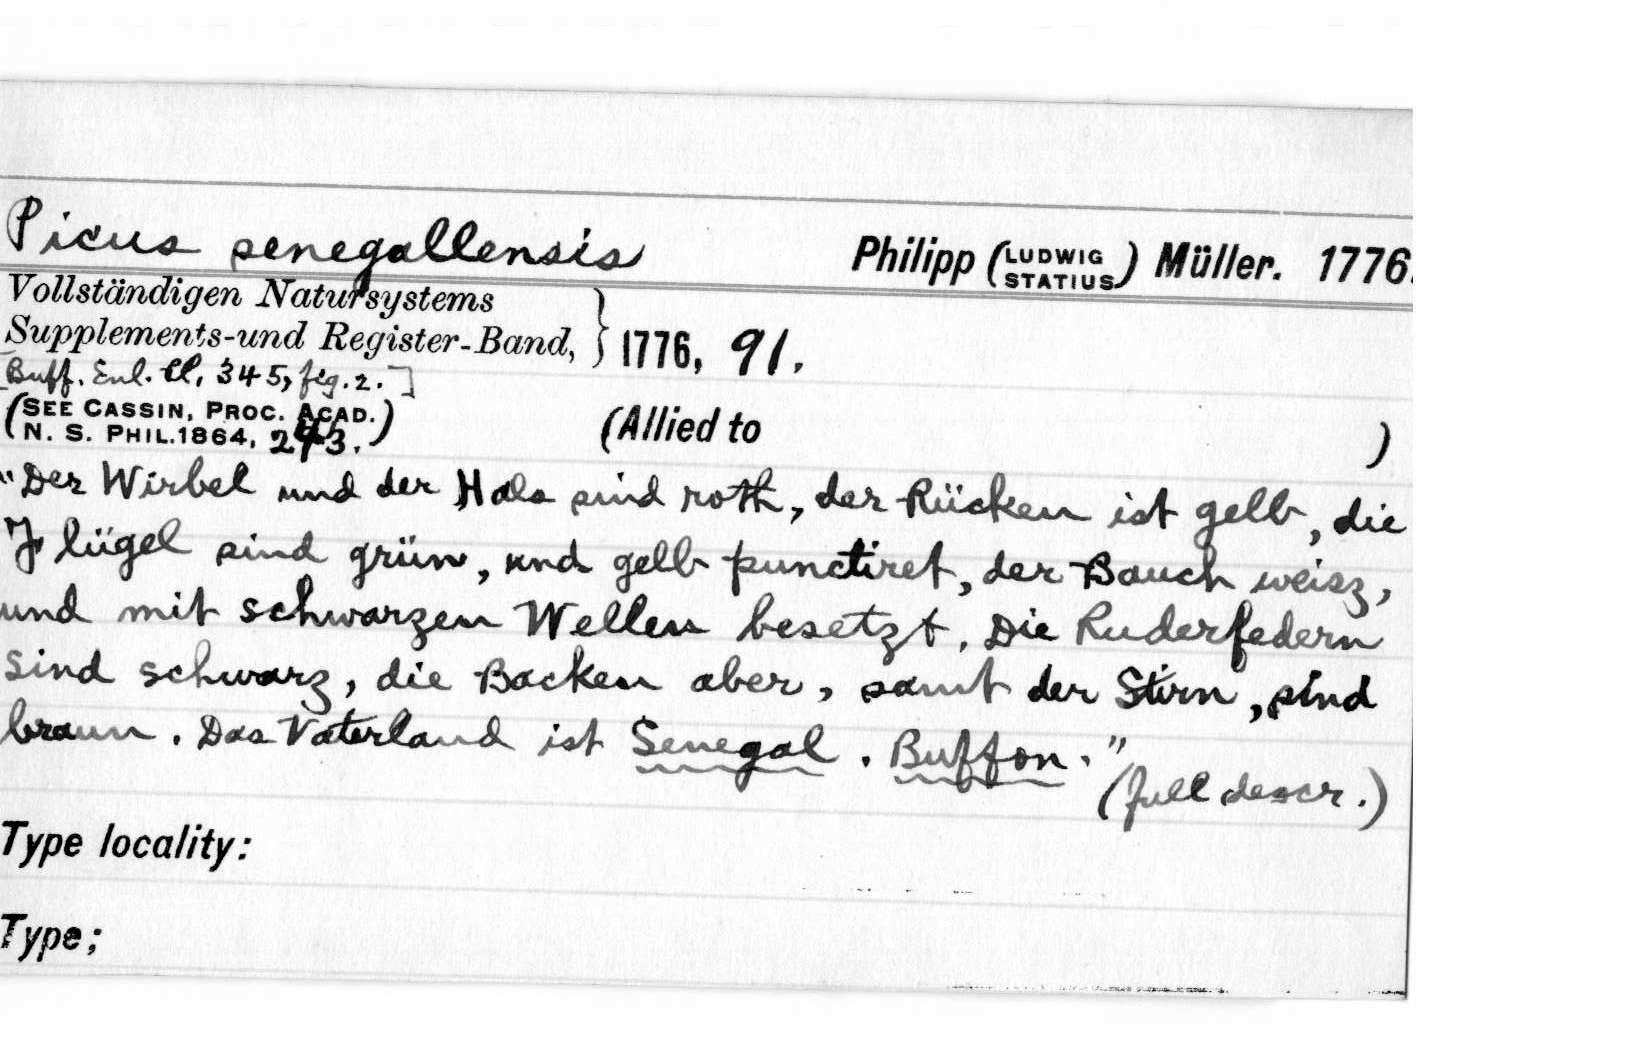 Picus senegallensis Philipp (LUDWIG STATIUS) Müller. 1776.
Vollständigen Natursystems
Supplements-und Register-Band, } 1776, 91.
[Buff. Enl. pl, 345, fig. 2.]
(SEE CASSIN, PROC. ACAD.
N. S. PHIL. 1864, 243.) (Allied to )
"Der Wirbel und der Hals sind roth, der Rücken ist gelb, die
Flügel sind grün, und gelb punctiret, der Bauch weisz,
und mit schwarzen Wellen besetzt. Die Ruderfedern
sind schwarz, die Backen aber, samt der Stirn, sind
braun. Das Vaterland ist Senegal. Buffon."
(full descr.)
Type locality:
Type;